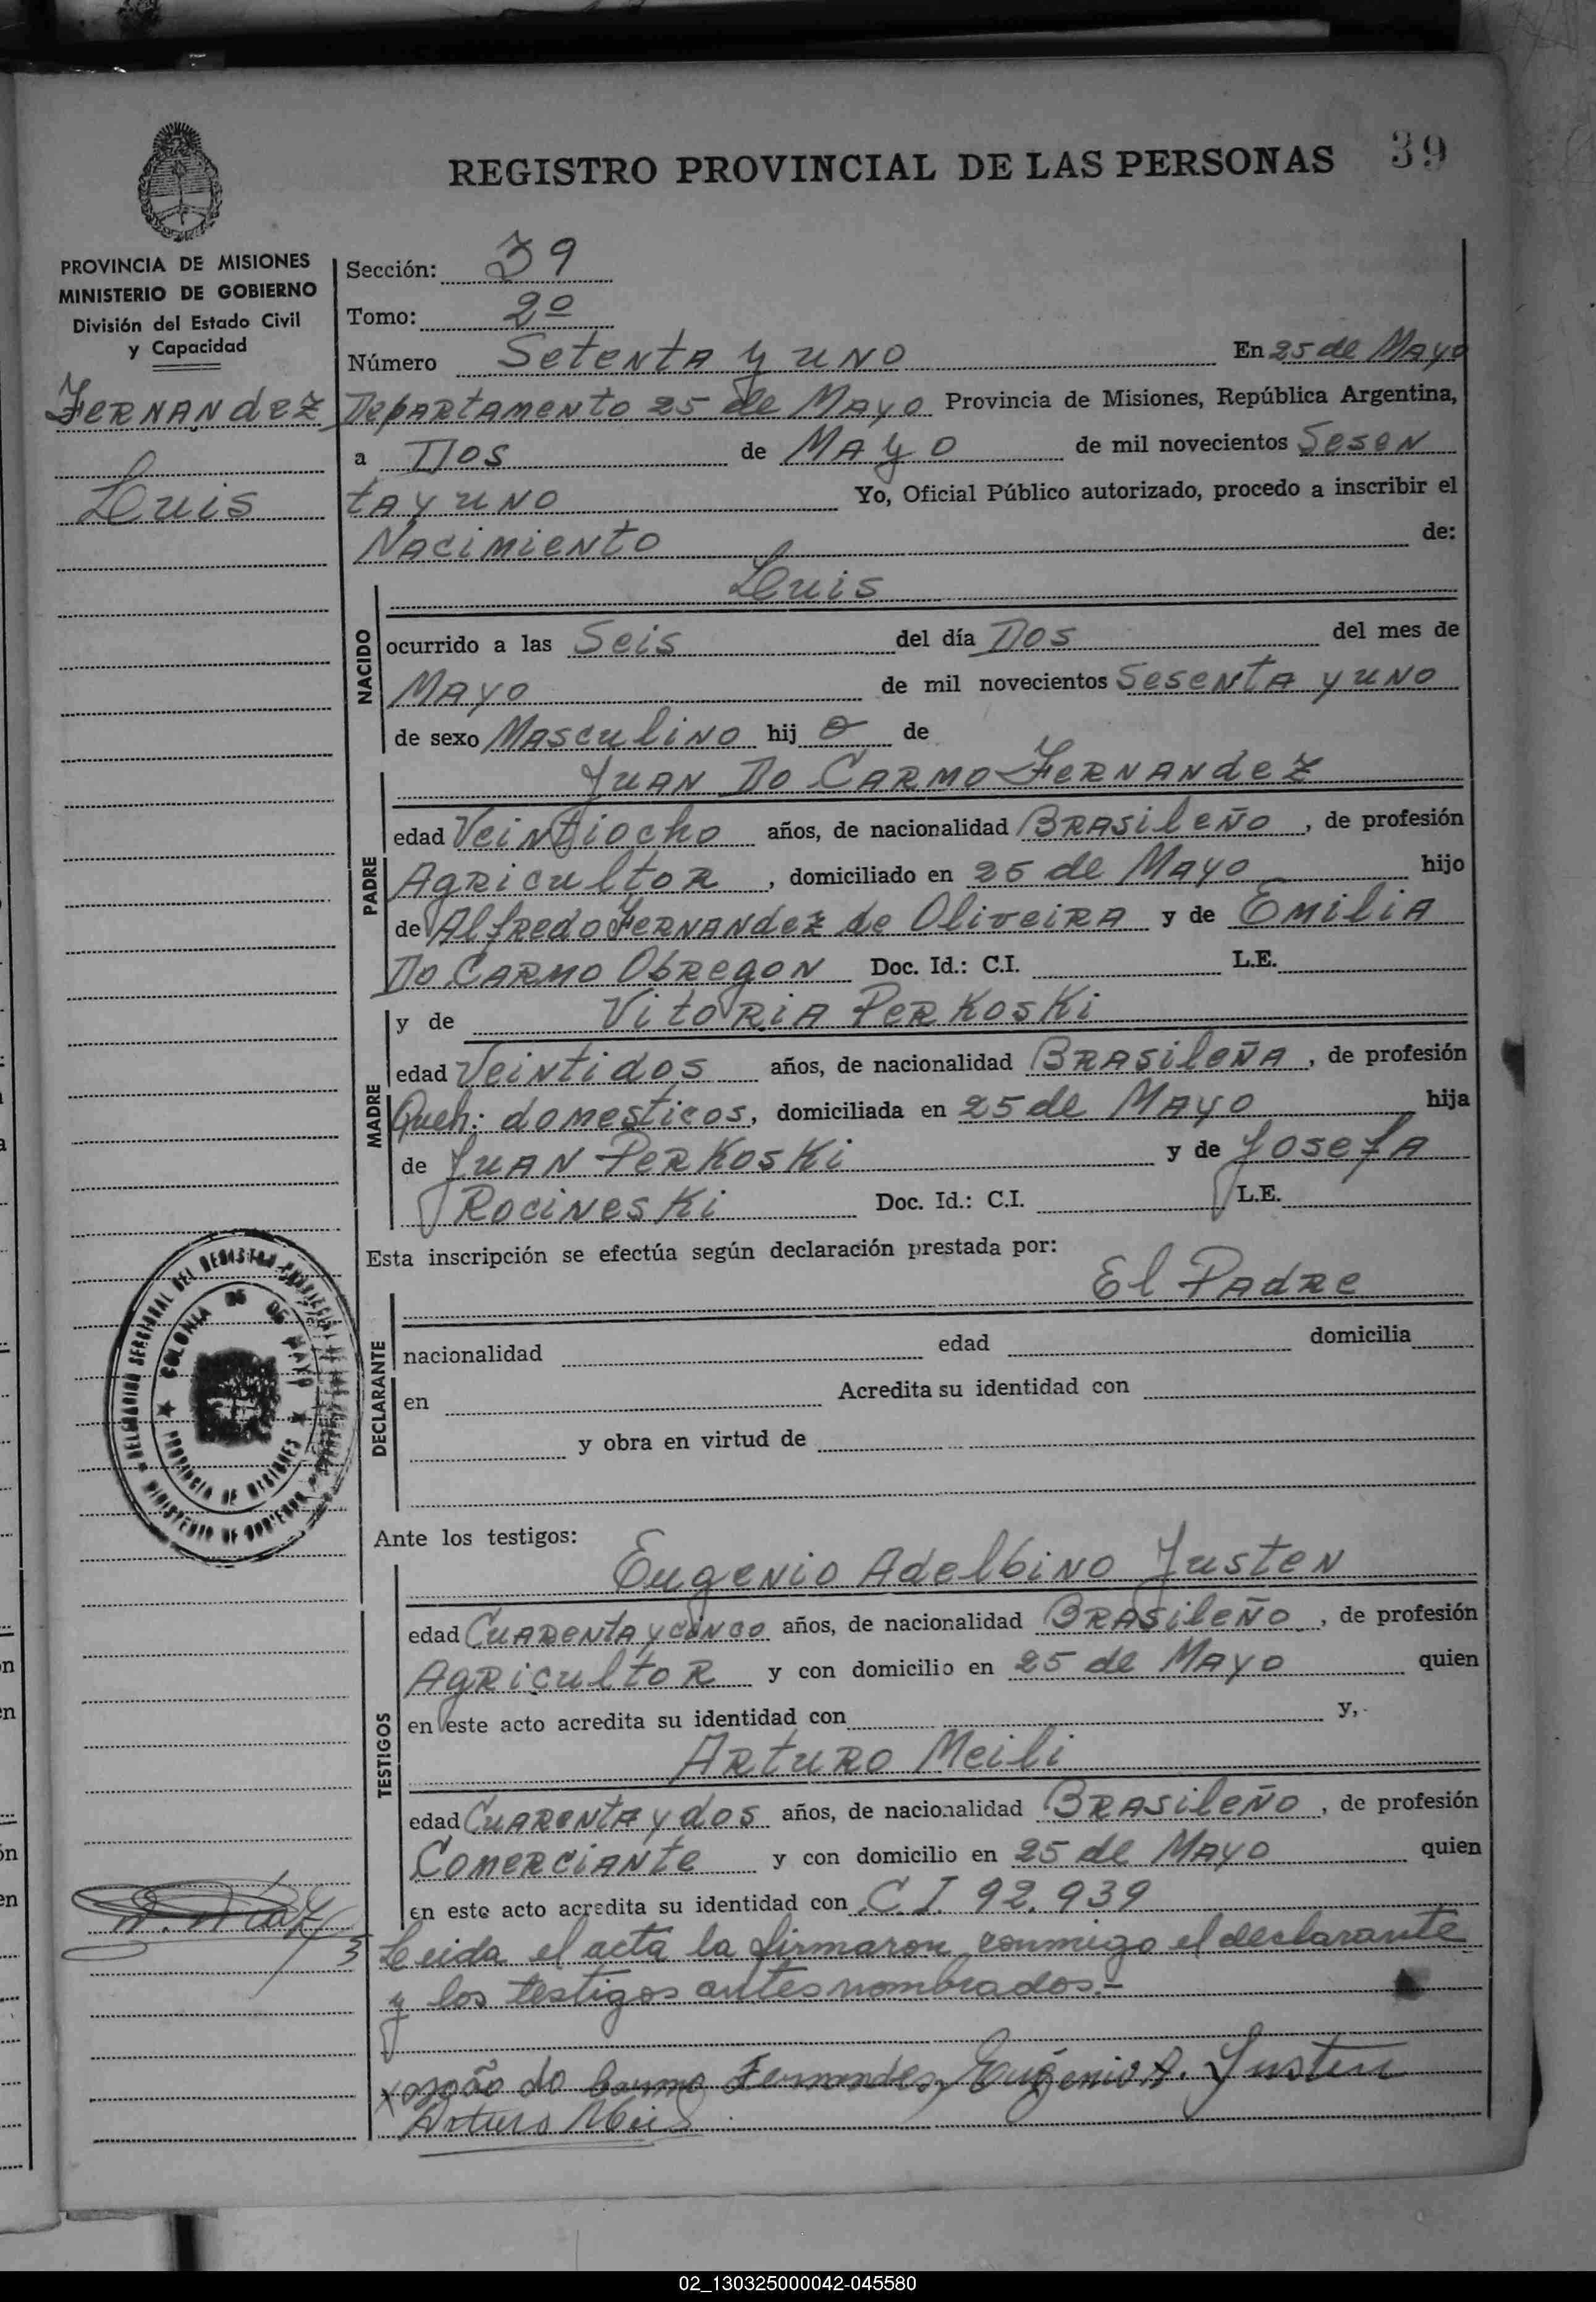 REGISTRO PROVINCIAL DE LAS PERSONAS 39
PROVINCIA DE MISIONES
MINISTERIO DE GOBIERNO
División del Estado Civil
y Capacidad
Fernandez
Luis
Sección: 39
Tomo: 2º
Número Setenta y uno En 25 de Mayo
Departamento 25 de Mayo Provincia de Misiones, República Argentina,
a Dos de Mayo de mil novecientos Sesen
ta y uno Yo, Oficial Público autorizado, procedo a inscribir el
Nacimiento de:
Luis
NACIDO
ocurrido a las Seis del día Dos del mes de
Mayo de mil novecientos Sesenta y uno
de sexo Masculino hij o de
Juan Do Carmo Fernandez
PADRE
edad Veintiocho años, de nacionalidad Brasileño, de profesión
Agricultor, domiciliado en 25 de Mayo hijo
de Alfredo Fernandez de Oliveira y de Emilia
Do Carmo Obregon Doc. Id.: C.I. L.E.
y de Vitoria Perkoski
MADRE
edad Veintidos años, de nacionalidad Brasileña, de profesión
Queh: domesticos, domiciliada en 25 de Mayo hija
de Juan Perkoski y de Josefa
Rocineski Doc. Id.: C.I. L.E.
Esta inscripción se efectúa según declaración prestada por:
El Padre
DECLARANTE
nacionalidad edad domicilia
en Acredita su identidad con
y obra en virtud de
DELEGACION SECCIONAL DEL REGISTRO PROVINCIAL
COLONIA 25 DE MAYO
PROVINCIA DE MISIONES
MINISTERIO DE GOBIERNO
Ante los testigos:
Eugenio Adelbino Justen
TESTIGOS
edad Cuarenta y cinco años, de nacionalidad Brasileño, de profesión
Agricultor y con domicilio en 25 de Mayo quien
en este acto acredita su identidad con y,
Arturo Meili
edad Cuarenta y dos años, de nacionalidad Brasileño, de profesión
Comerciante y con domicilio en 25 de Mayo quien
en este acto acredita su identidad con C.I. 92.939
Leida el acta la firmaron conmigo el declarante
y los testigos antes nombrados.-
João do Carmo Fernandes Eugenio A. Justen
Arturo Meili
02_130325000042-045580